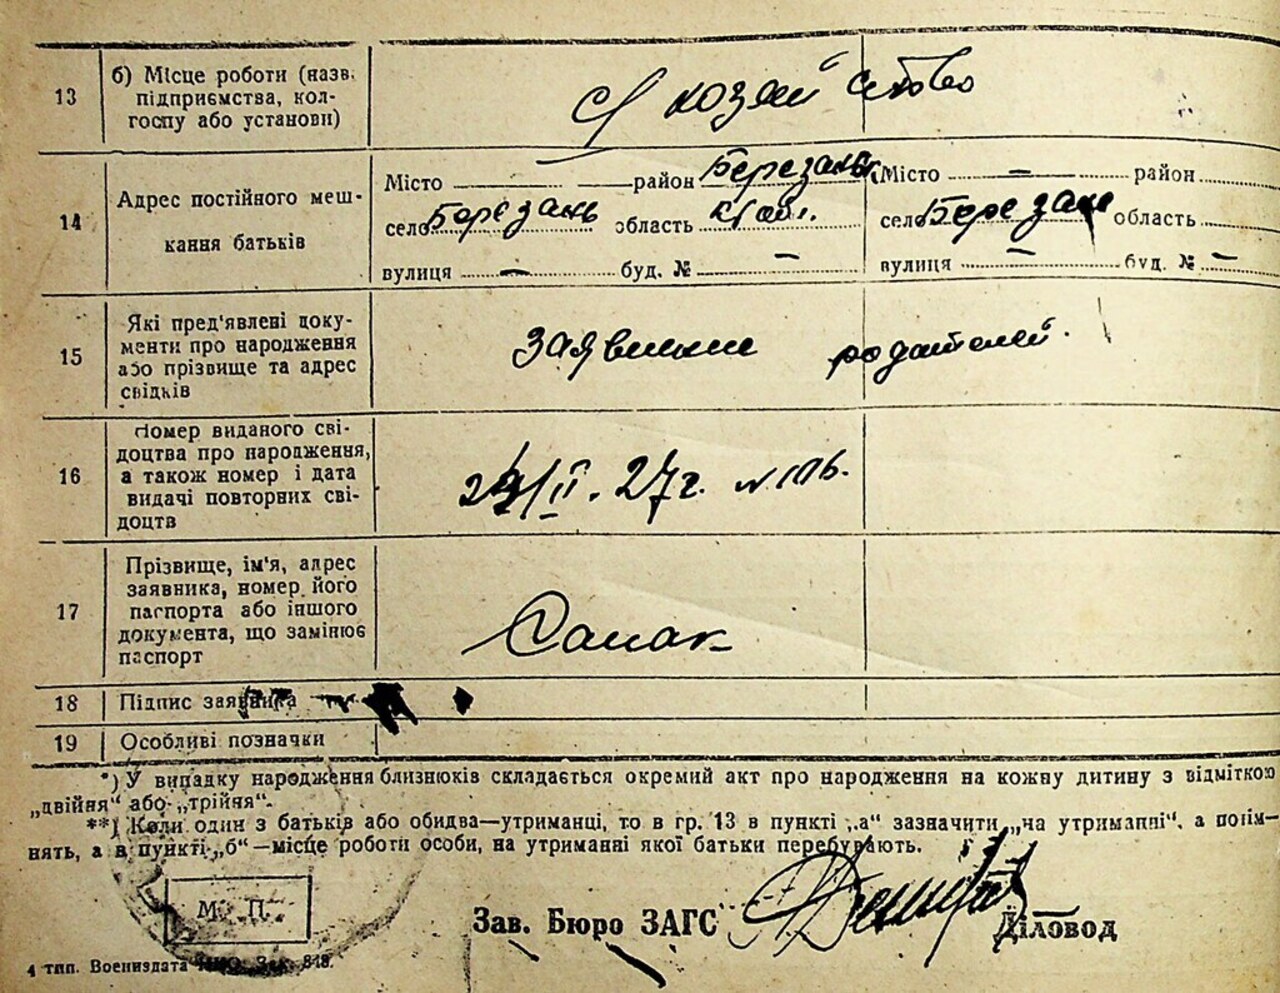 13 б) Місце роботи (назв. підприємства, колгоспу або установи)
С/хозяйство
14 Адрес постійного мешкання батьків
Місто — район Березань
село Березань область
вулиця — буд. № —
Місто — район
село Березань область
вулиця — буд. № —
15 Які пред'явлені документи про народження або прізвище та адрес свідків
заявление родителей.
16 Номер виданого свідоцтва про народження, а також номер і дата видачі повторних свідоцтв
/II. 27 г. №
17 Прізвище, ім'я, адрес заявника, номер його паспорта або іншого документа, що замінює паспорт
18 Підпис заявника
19 Особливі позначки
*) У випадку народження близнюків складається окремий акт про народження на кожну дитину з відміткою
„двійня" або „трійня".
**) Коли один з батьків або обидва—утриманці, то в гр. 13 в пункті „а" зазначити „на утриманні", а потім-
нять, а в пункті „б"—місце роботи особи, на утриманні якої батьки перебувають.
М. П.
Зав. Бюро ЗАГС Діловод
4 тип. Воениздата НКО. Зак. 818.